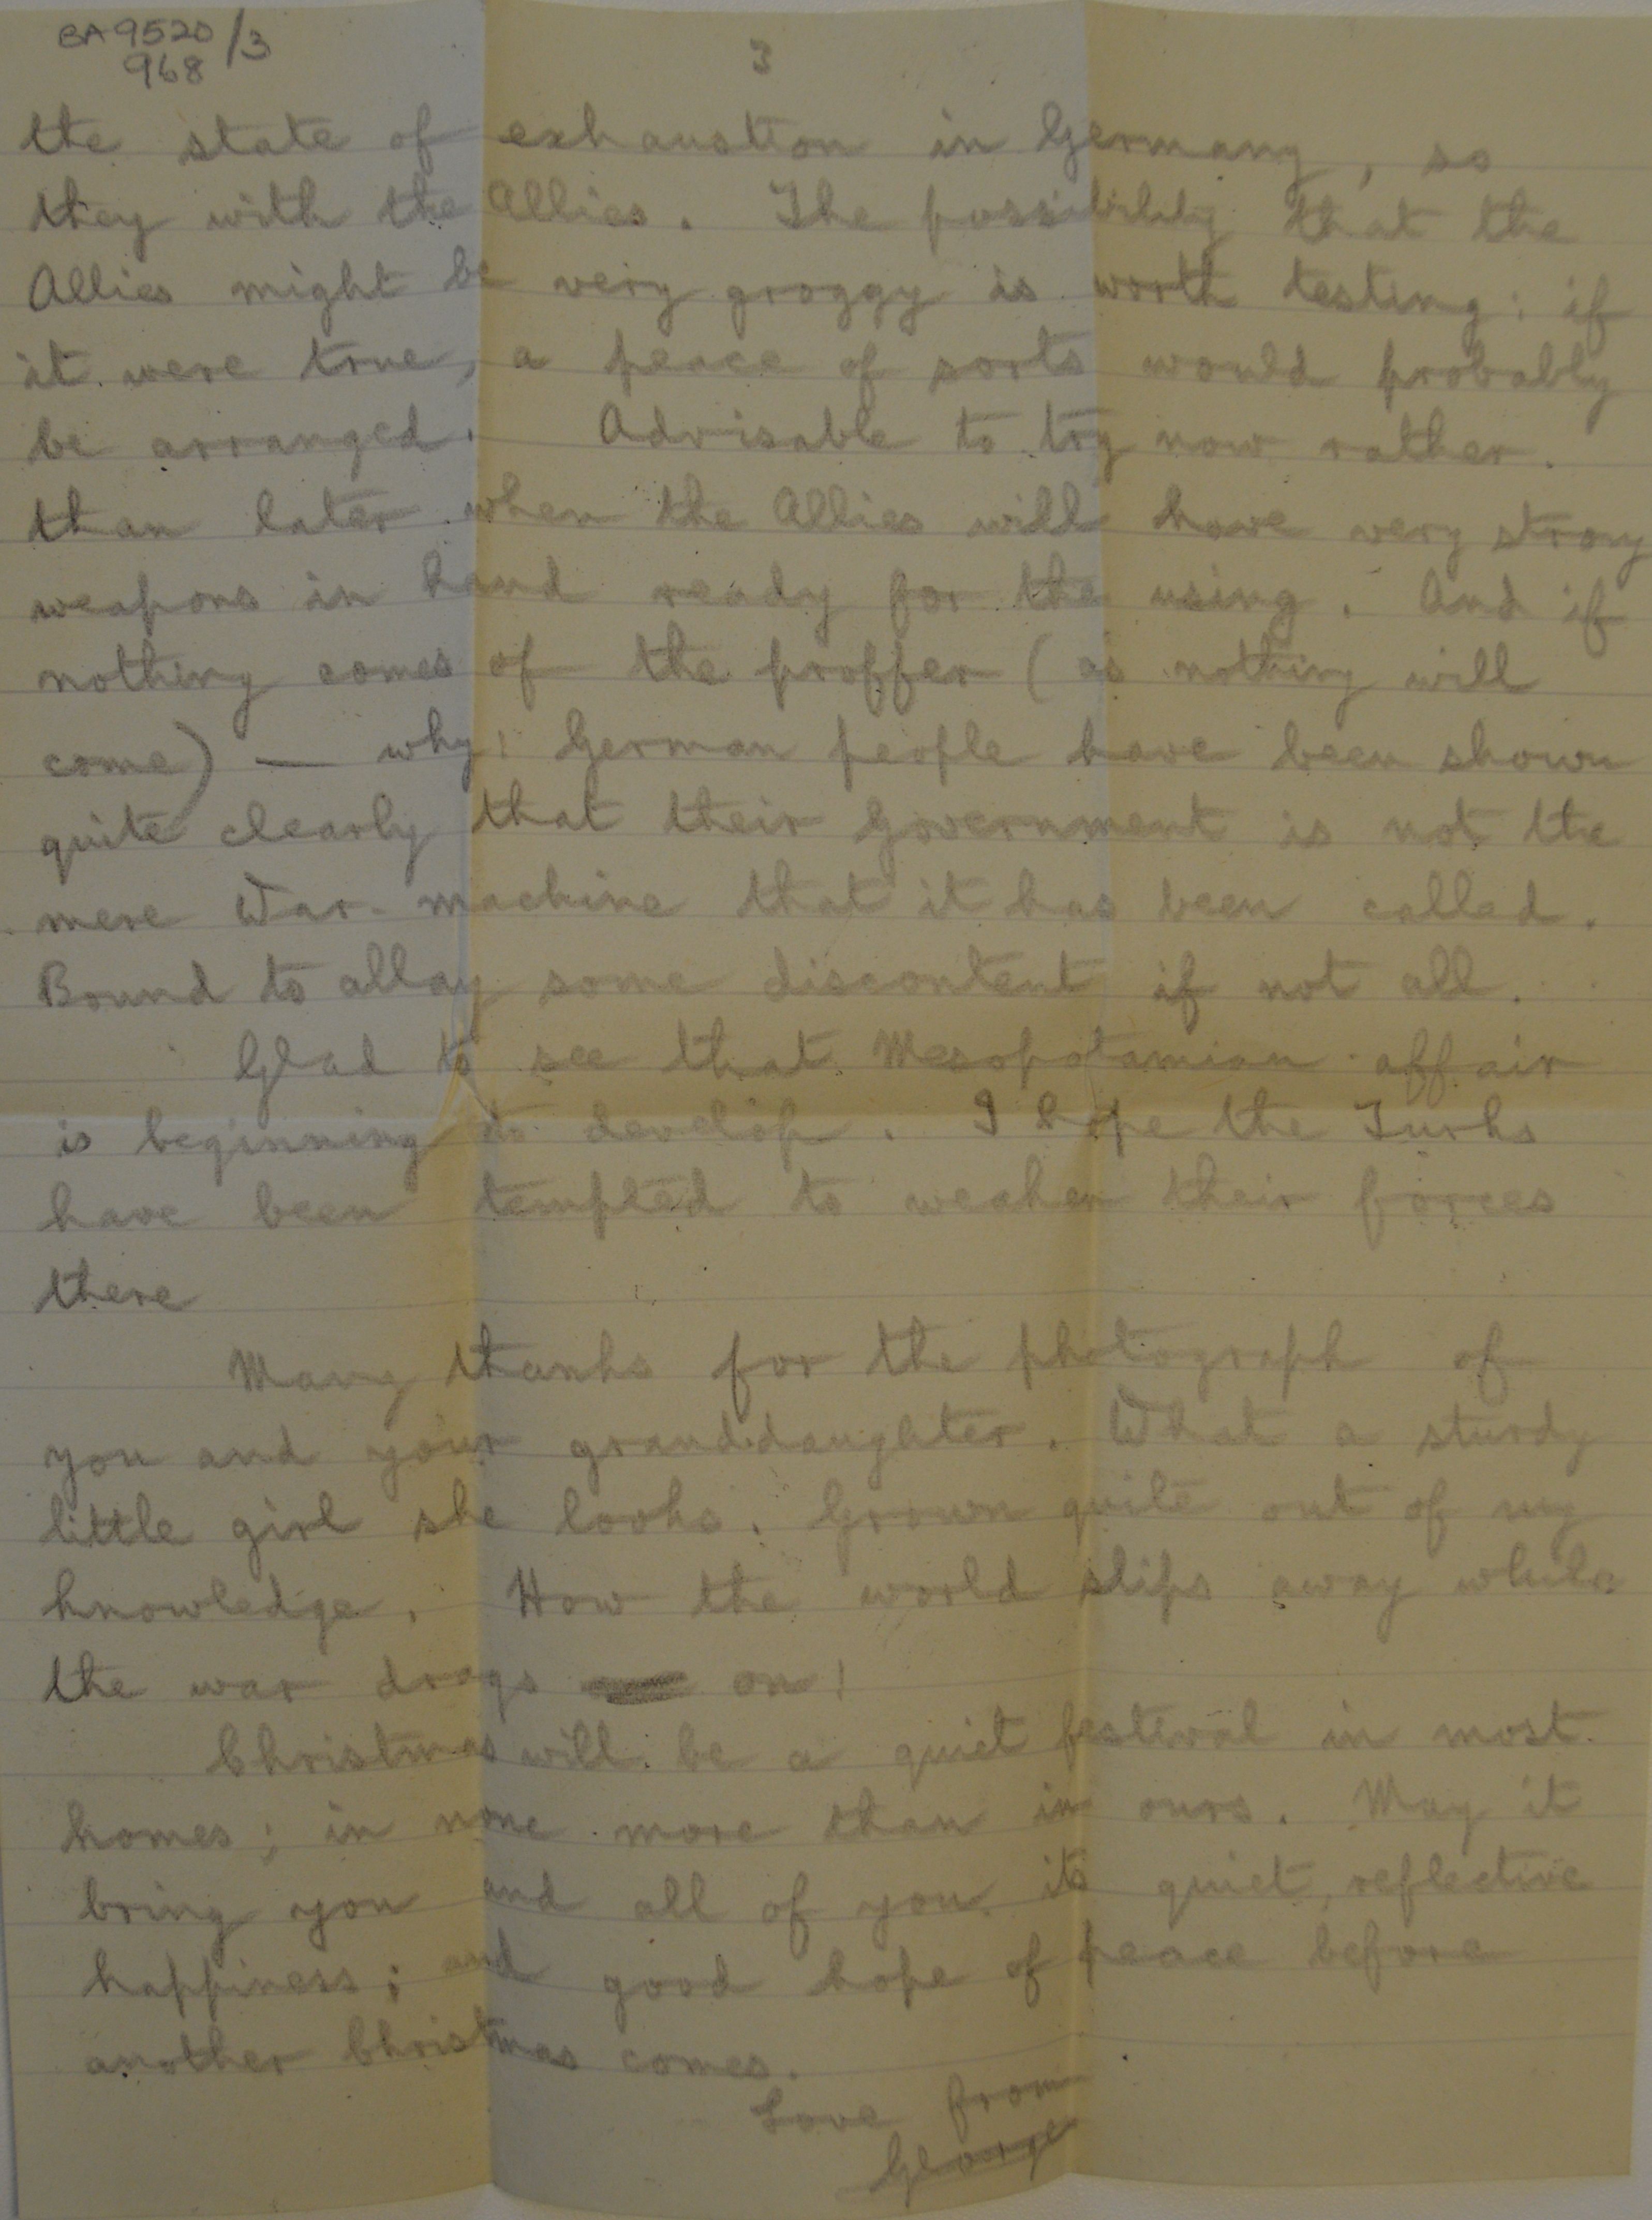 BA9520/3
968
3
the state of exhaustion in Germany, so
they with the Allies. The possibility that the
Allies might be very groggy is worth testing: if
it were true, a peace of sorts would probably
be arranged. Advisable to try now rather
than later when the Allies will have very strong
weapons in hand ready for the using. And if
nothing comes of the proffer (as nothing will
come) — why! German people have been shown
quite clearly that their Government is not the
mere War-machine that it has been called.
Bound to allay some discontent if not all.
Glad to see that Mesopotamian affair
is beginning to develop. I hope the Turks
have been tempted to weaken their forces
there
Many thanks for the photograph of
you and your granddaughter. What a sturdy
little girl she looks. Grown quite out of my
knowledge. How the world slips away while
the war drags on!
Christmas will be a quiet festival in most
homes; in none more than in ours. May it
bring you and all of you its quiet, reflective
happiness; and good hope of peace before
another Christmas comes.
Love from
George